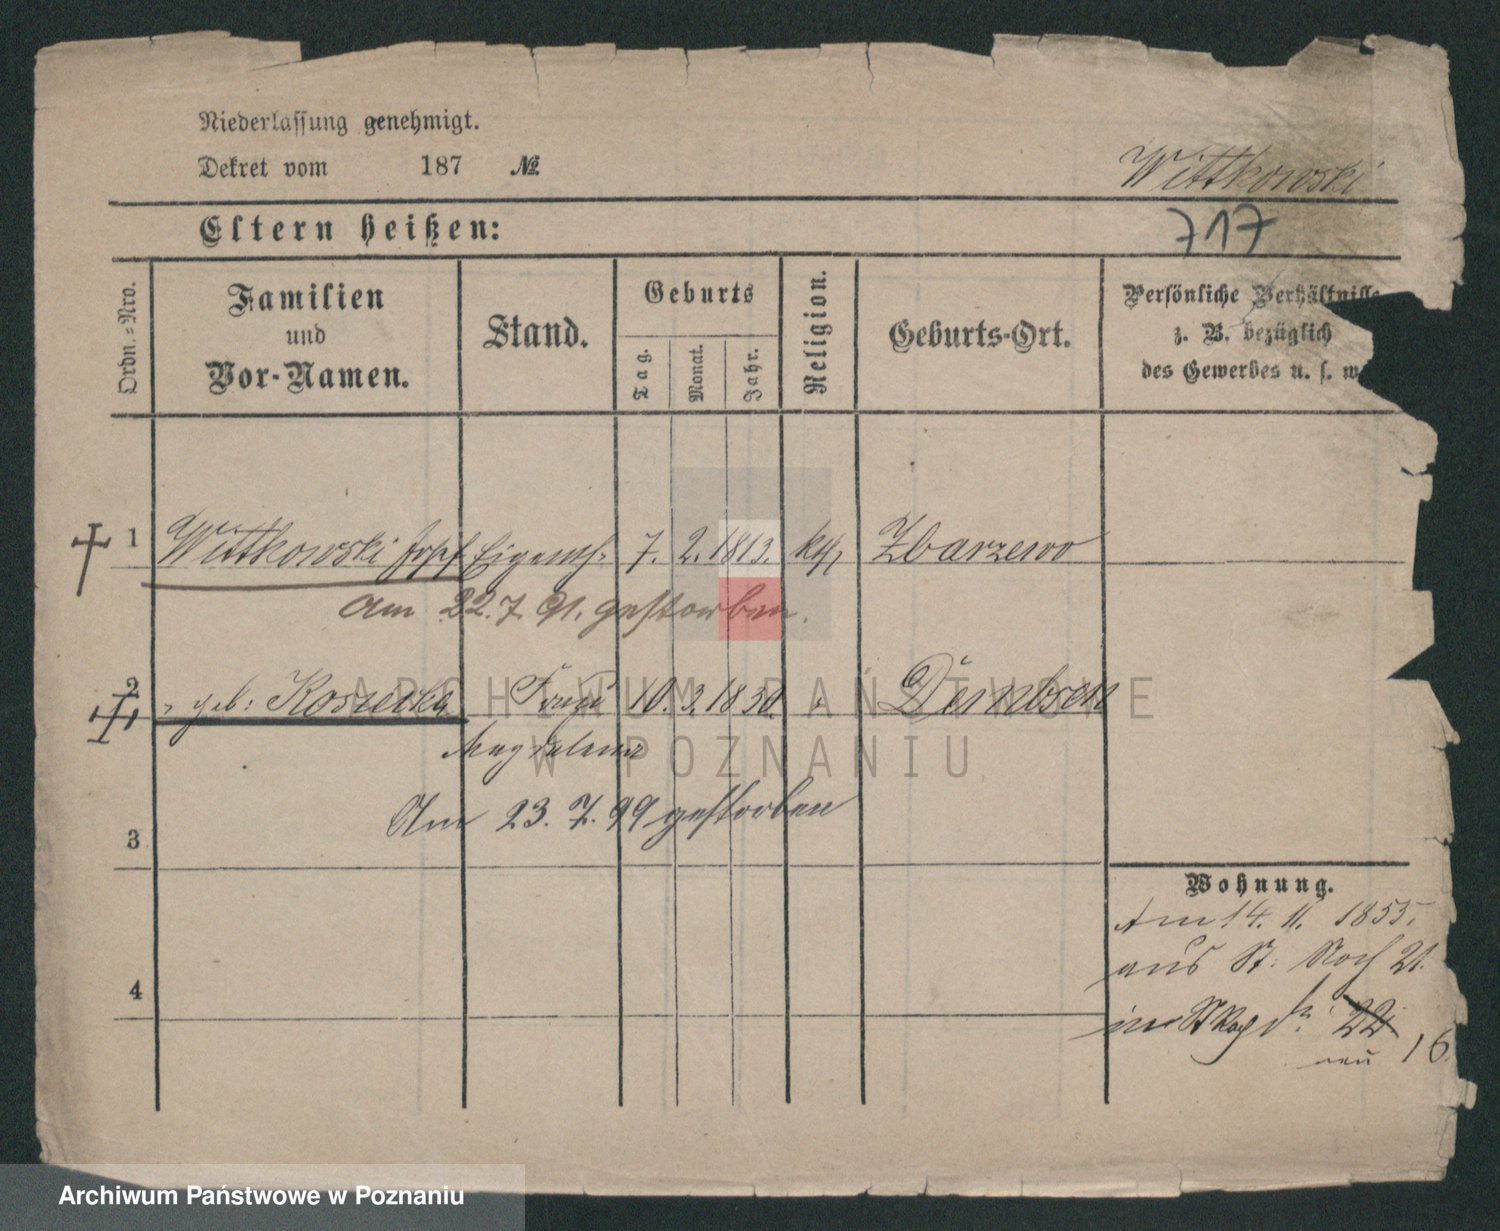 Niederlassung genehmigt.
Dekret vom 187 №
Wittkowski
717
Eltern heißen:
Ordn.=Nro.
Familien
und
Vor-Namen.
Stand.
Geburts
Tag.
Monat.
Jahr.
Religion.
Geburts-Ort.
Persönliche Verhältnisse
z. B. bezüglich
des Gewerbes u. s. w
1 Wittkowski Josef Eigenth: 7. 2. 1813. kth, Zbarzewo
am 22. 7. 91. gestorben.
2 geb: Koszecka Frau 10. 3. 1830. Dembsen
Magdalena
Am 23. 7. 99 gestorben
3
4
Wohnung.
Am 14. 11. 1855.
aus St: Roch 21.
in St Roch 22
neu 16
ARCHIWUM PAŃSTWOWE
W POZNANIU
Archiwum Państwowe w Poznaniu